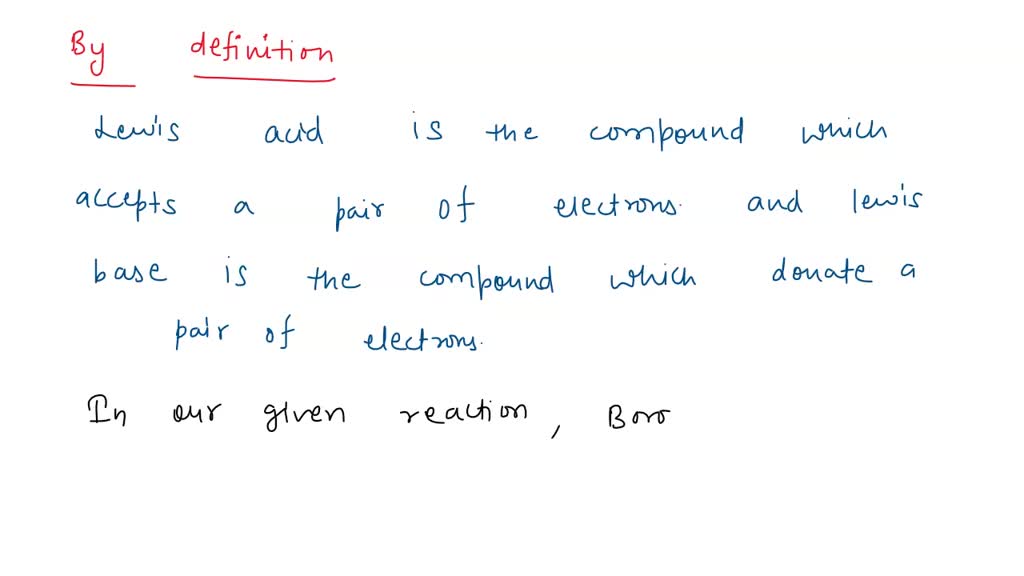 By definition
Lewis acid is the compound which
accepts a pair of electrons. and lewis
base is the compound which donate a
pair of electrons.
In our given reaction, Boro